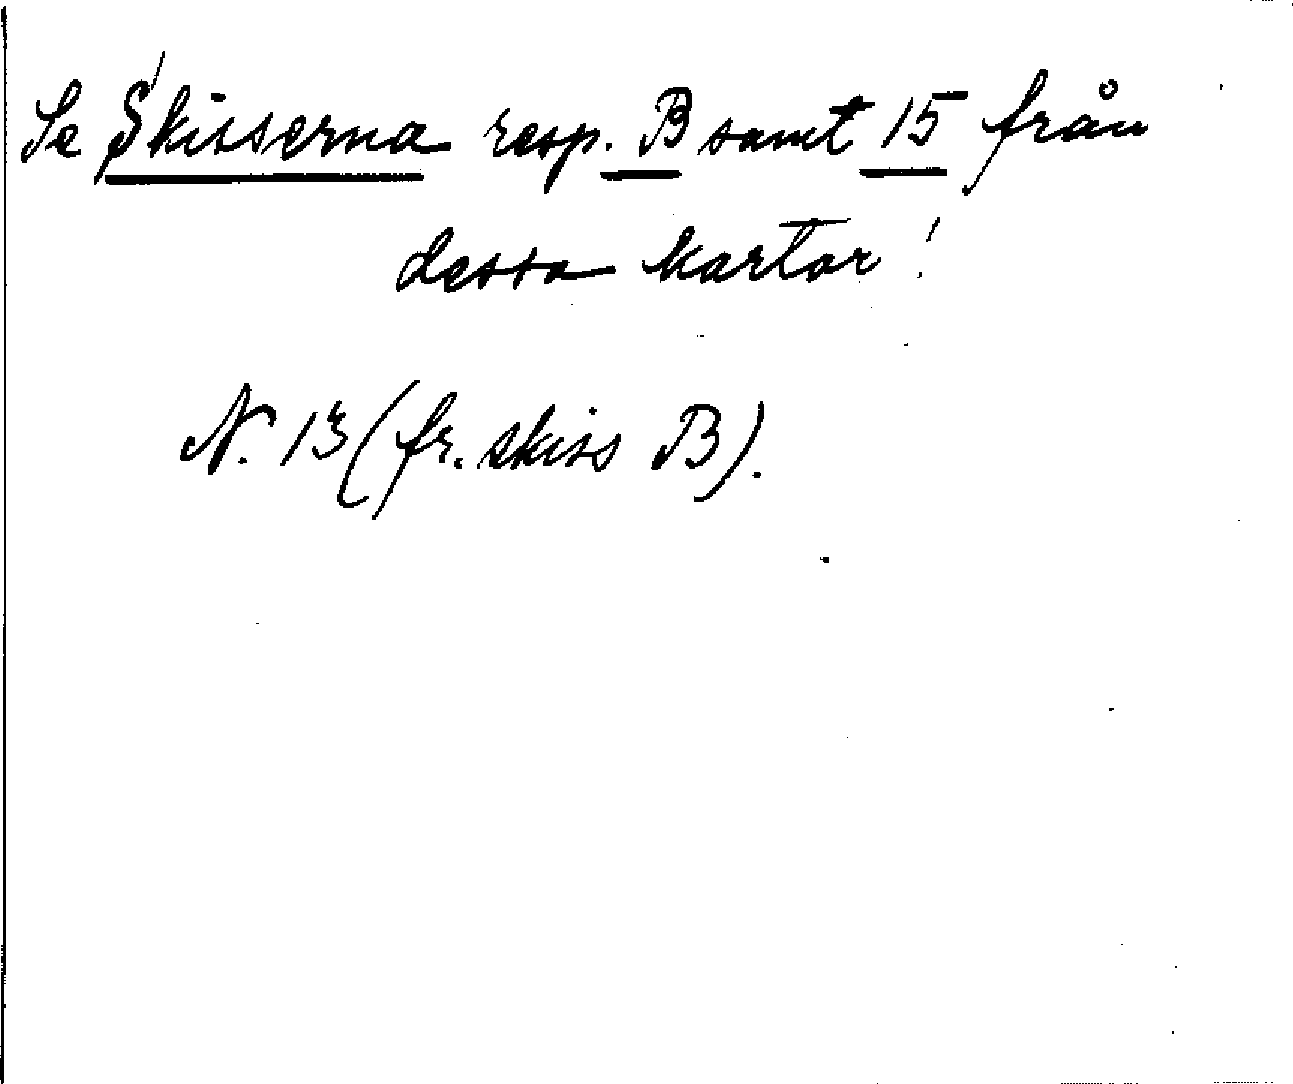 Se Skisserna resp. B samt 15 från
dessa kartor!
N. 13 (fr. skiss B).